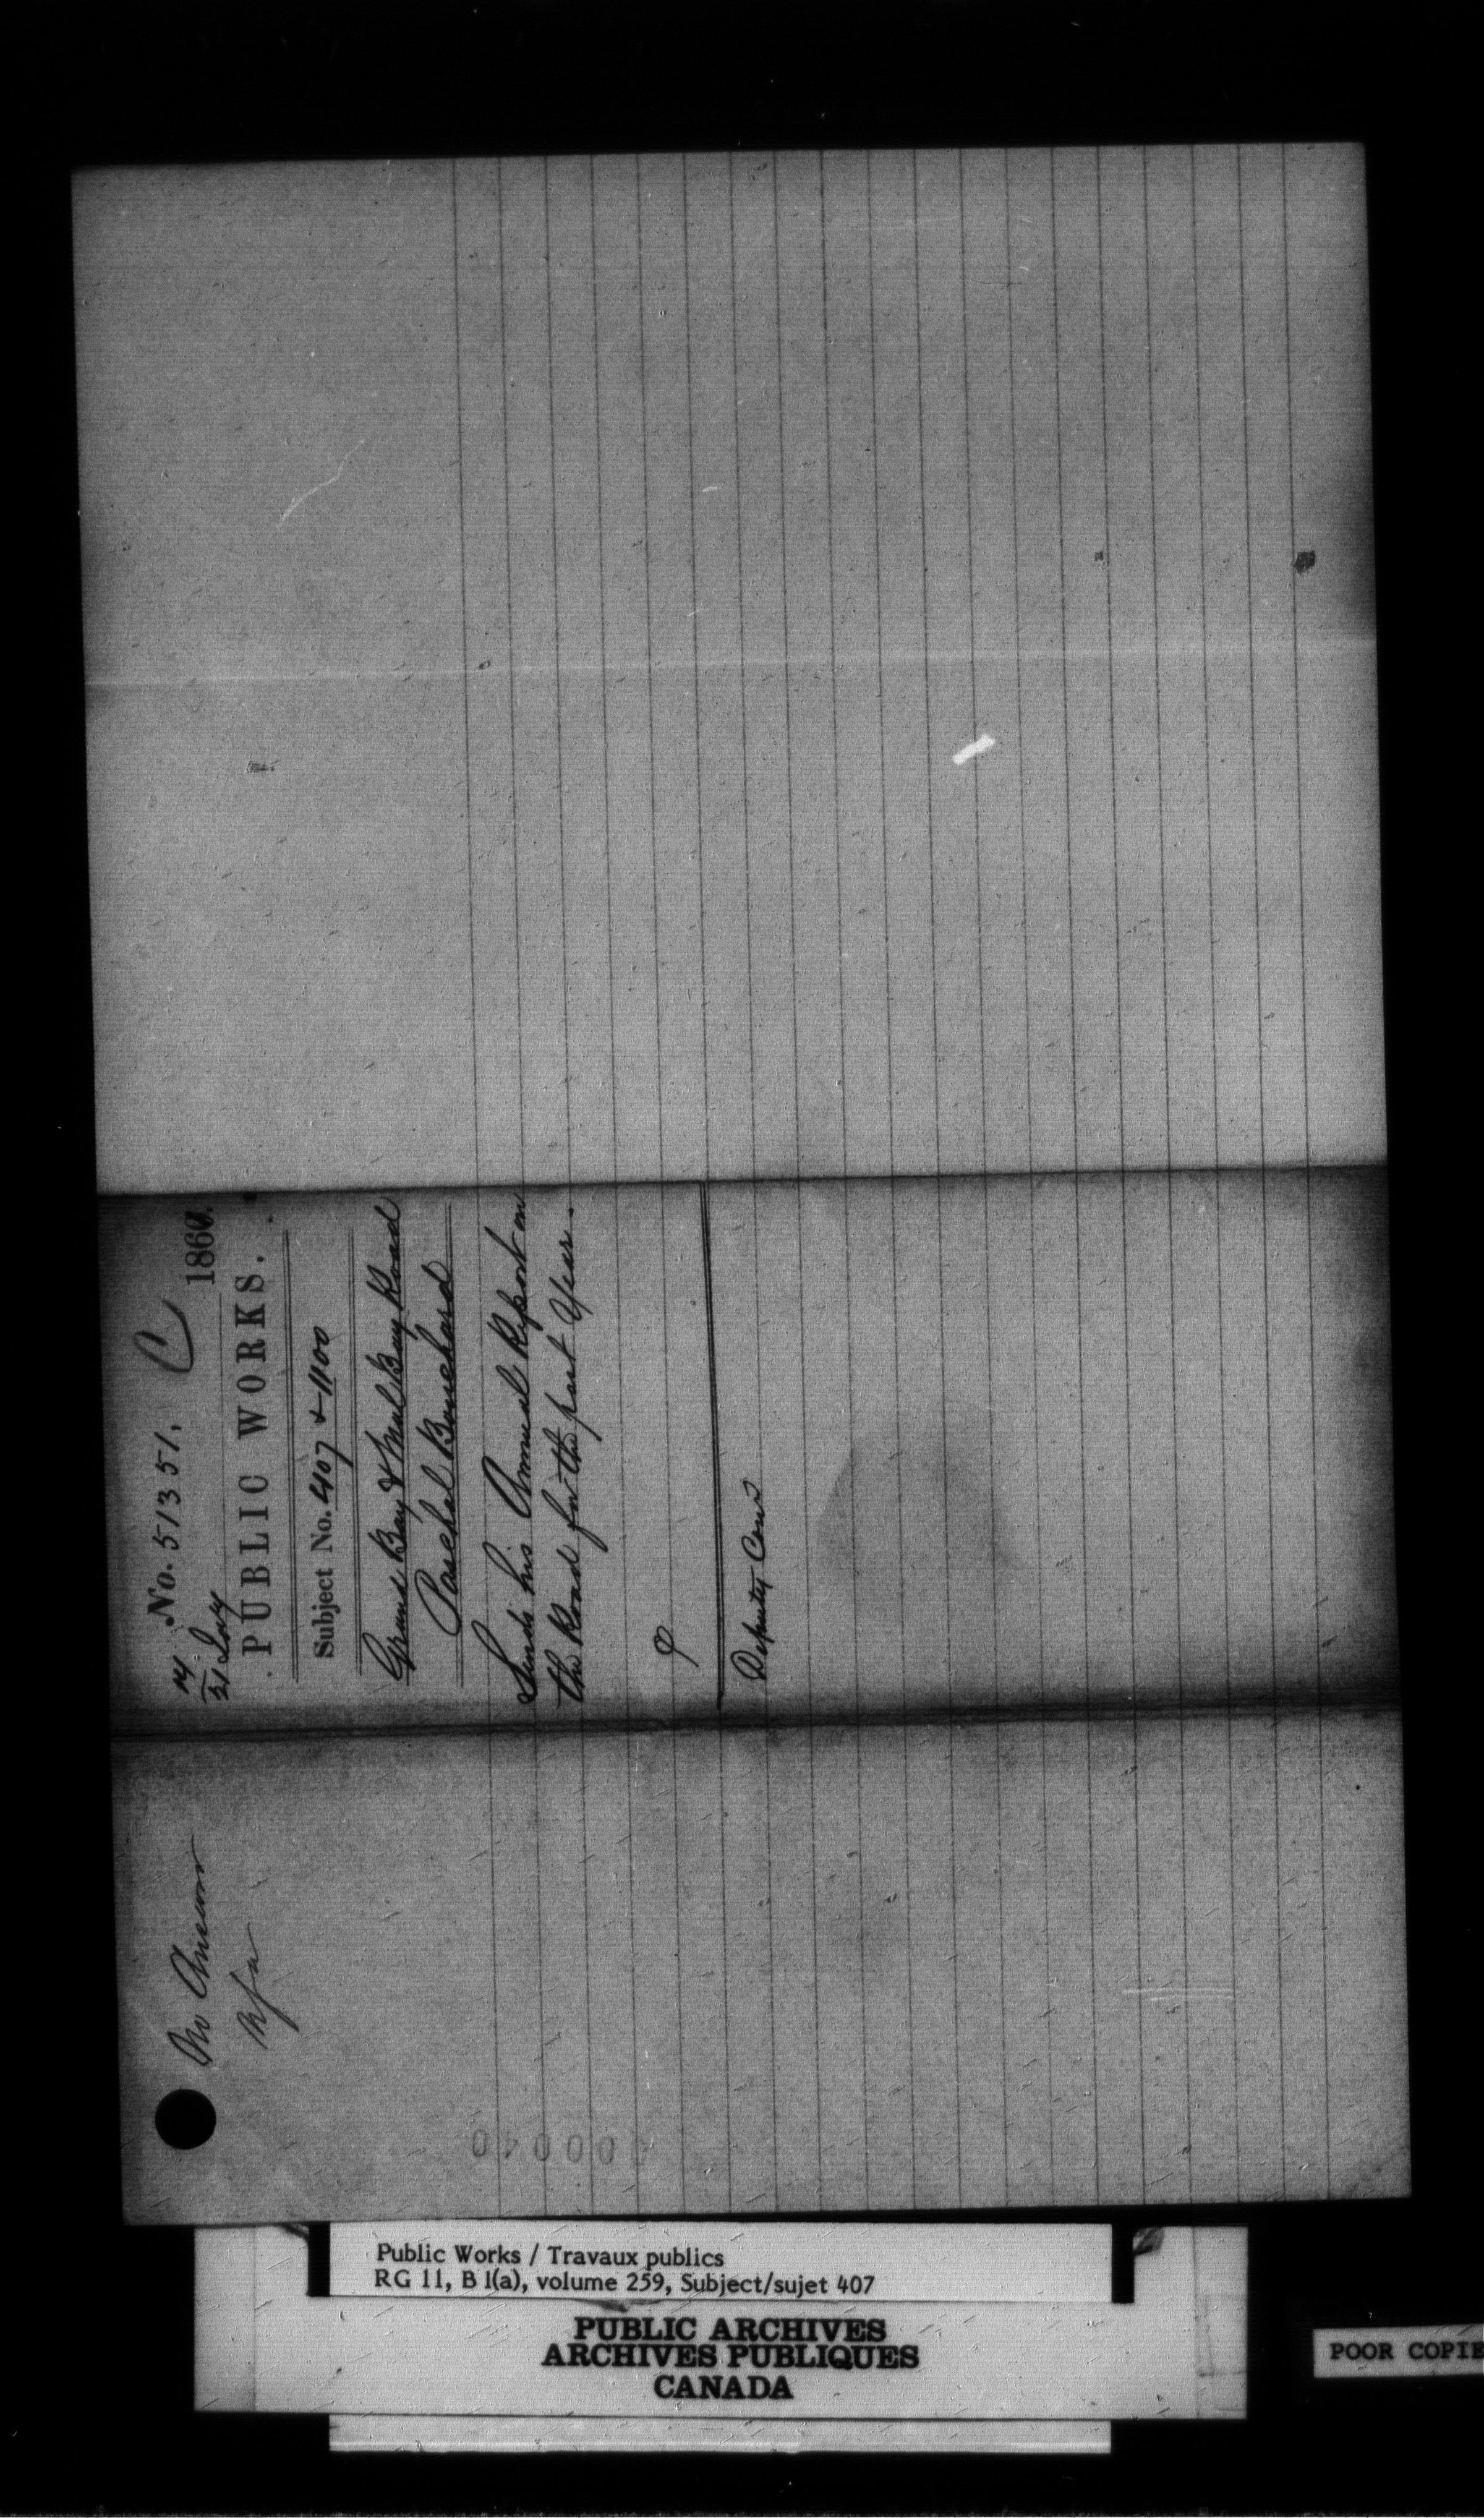 No. 51351.
14
21 Jay 1860.
PUBLIC WORKS.
Subject No. 407 & 1100
Grand Bay & Mal Bay Road
Paschal Bouchard
Sends his Annual Report on
the Road for the past Year.
Deputy Com
No Answer
000040
Public Works / Travaux publics
RG 11, B 1(a), volume 259, Subject/sujet 407
PUBLIC ARCHIVES
ARCHIVES PUBLIQUES
CANADA
POOR COPIE